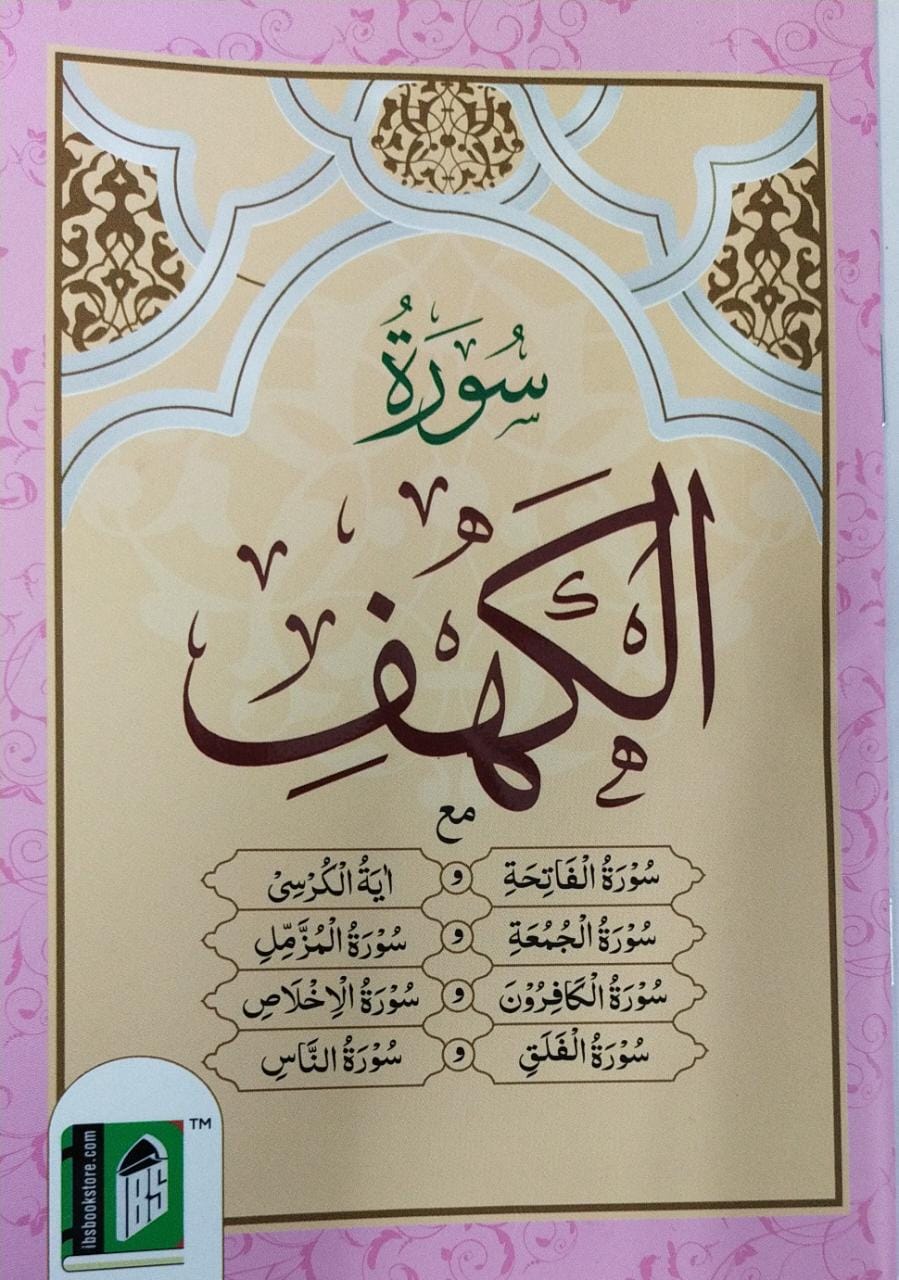 سُورَةُ
الْكَهْفِ
مع
سُوْرَةُ الْفَاتِحَةِ و اٰيَةُ الْكُرْسِىْ
سُوْرَةُ الْجُمُعَةِ و سُوْرَةُ الْمُزَّمِّلِ
سُوْرَةُ الْكَافِرُوْنَ و سُوْرَةُ الْاِخْلَاصِ
سُوْرَةُ الْفَلَقِ و سُوْرَةُ النَّاسِ
ibsbookstore.com
IBS
TM